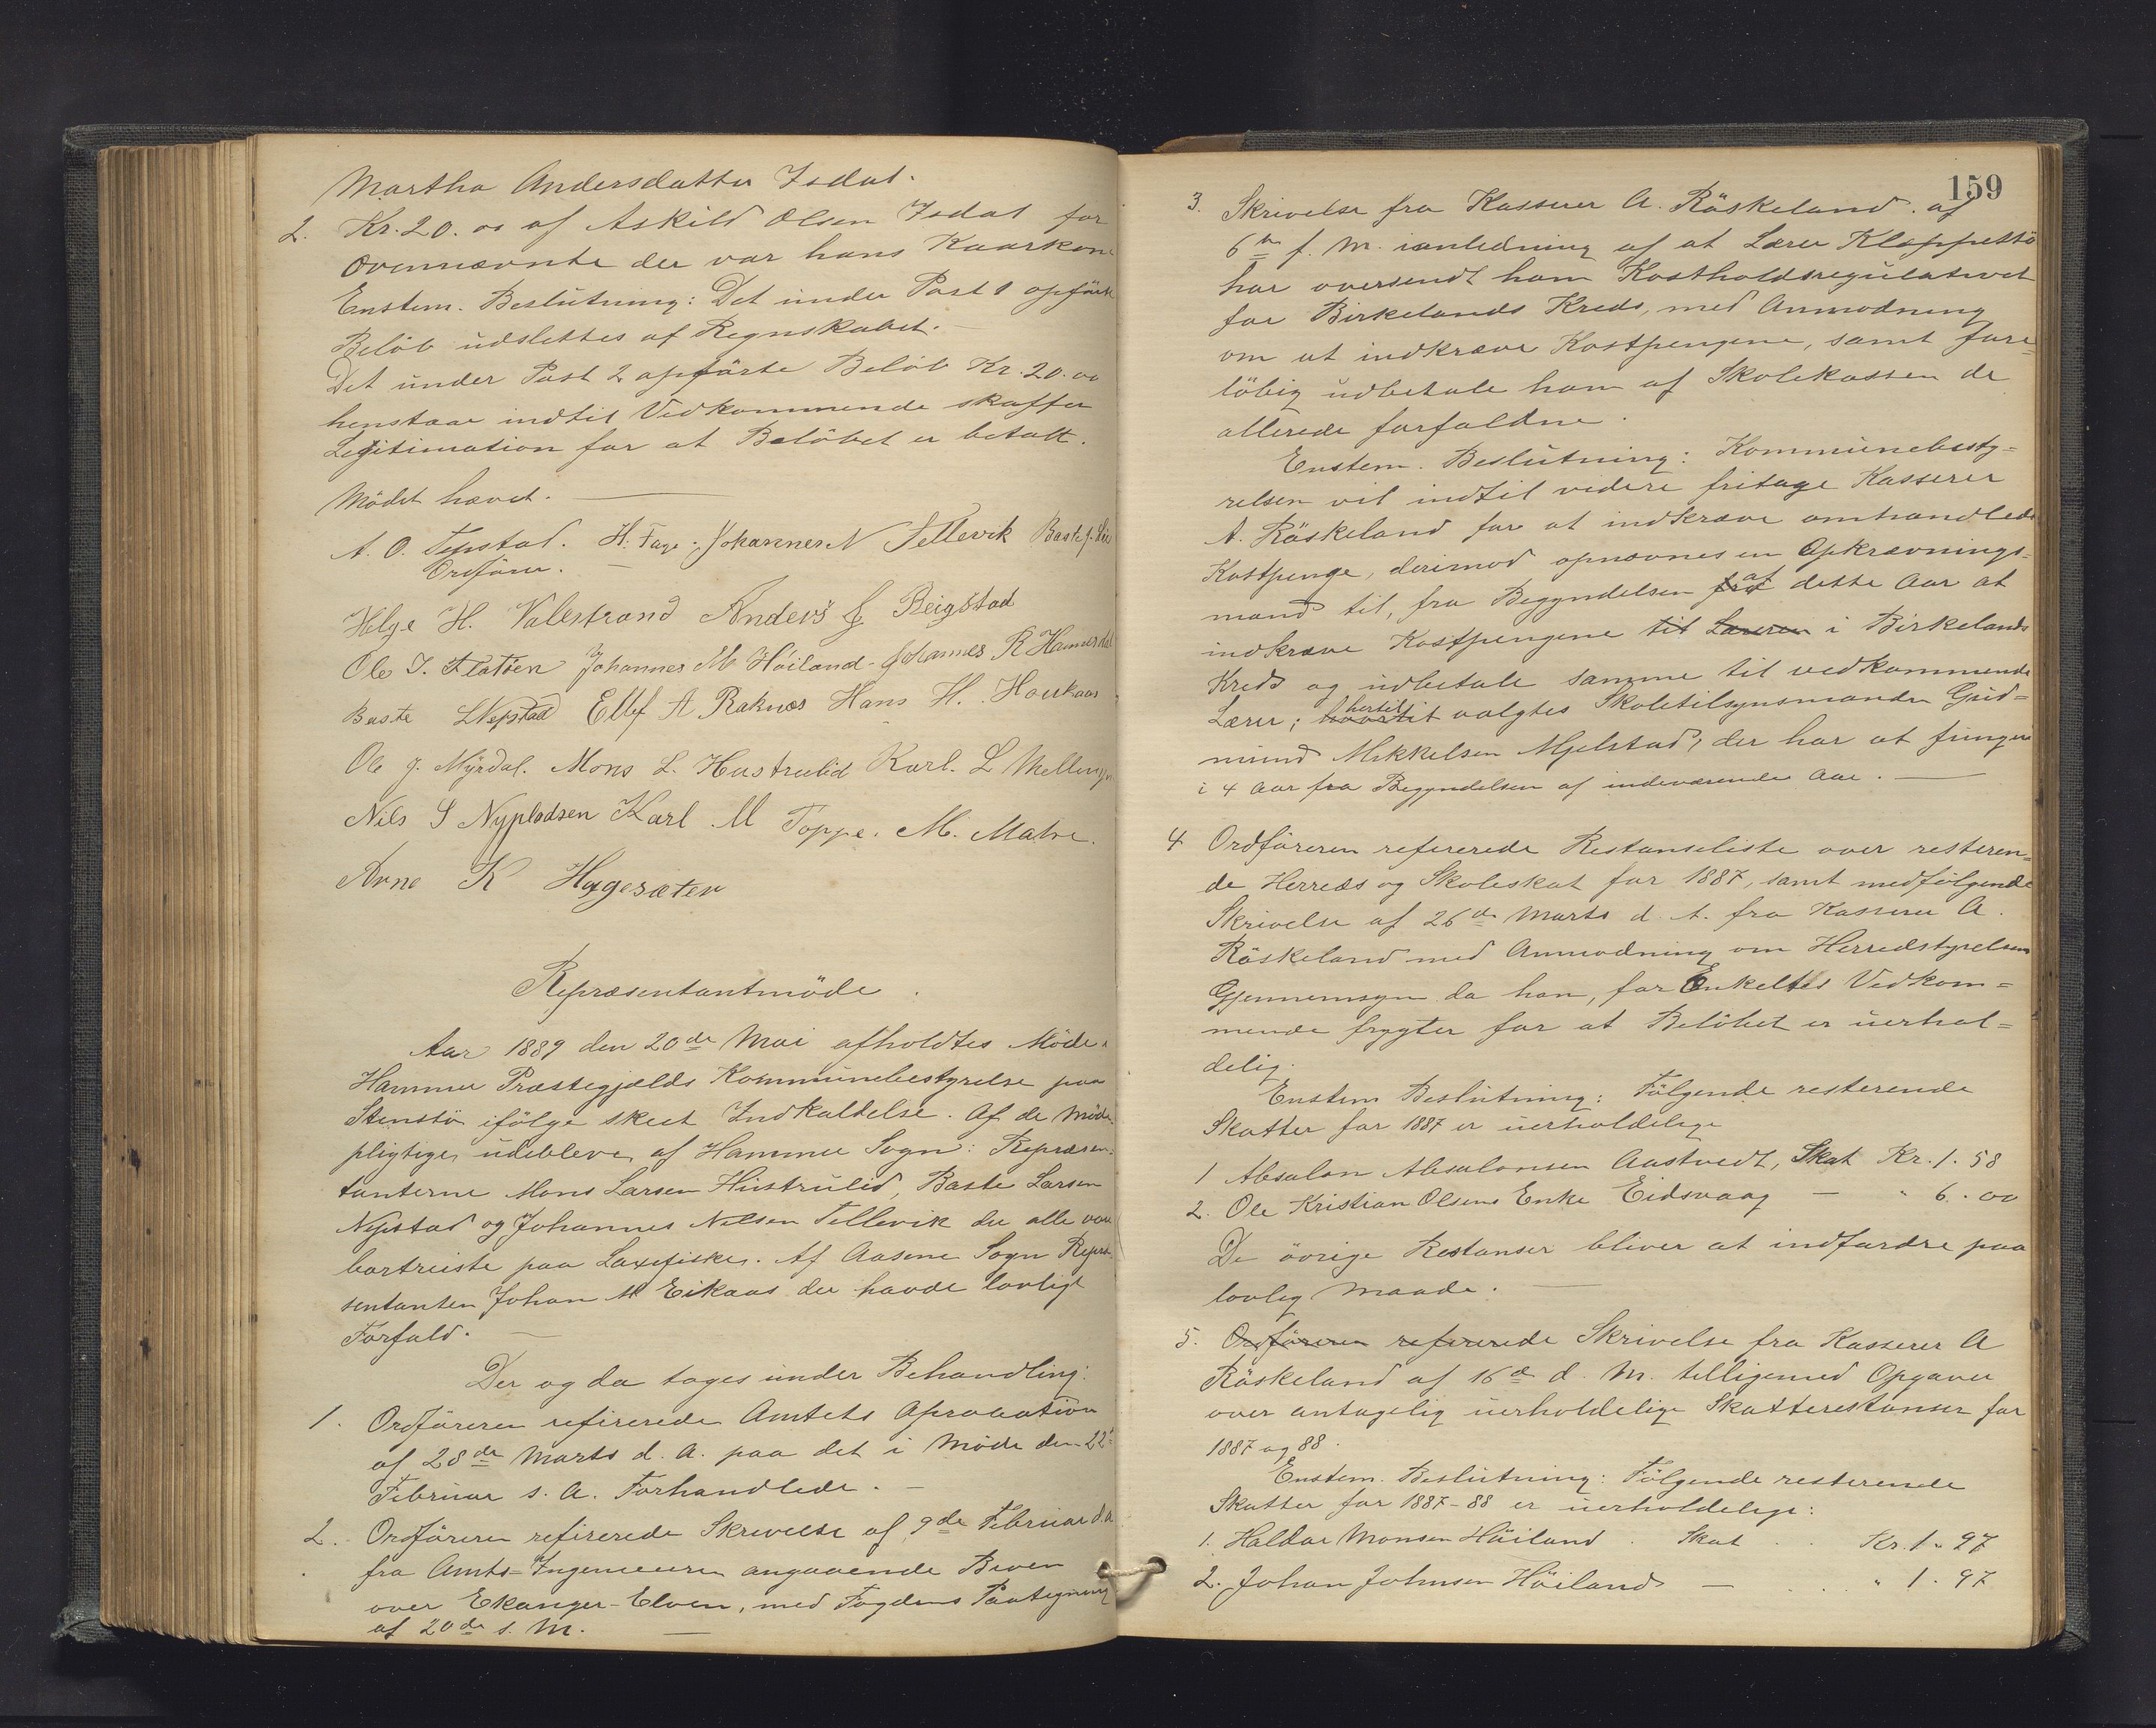 Martha Andersdatter Isdal.
2. Kr. 20.00 af Askild Olsen Isdal for
Ovennævnte der var hans Kaarkone
Enstem. Beslutning: Det under Post 1 opförte
Belöb udslettes af Regnskabet.
Det under Post 2 opförte Belöb Kr. 20.00
henstaar indtil Vedkommende skaffer
Legitimation for at Belöbet er betalt.
Mödet hævet.
A. O. Tepstad. H. Fage. Johannes N Tellevik Baste J.
Ordförer.
Helge H. Valestrand Anders J Reigstad
Ole I. Flatöen Johannes M Höiland. Johannes R Hamersdal
Baste L Nepstad Ellef A Raknes Hans H. Houkaas
Ole J. Myrdal. Mons L. Hustrulid Karl. L Mellingen
Nils S Nyplodsen Karl M Toppe. M. Matre.
Arne K Hagesæter
Repræsentantmöde.
Aar 1889 den 20de Mai afholdtes Möde i
Hammer Præstegjælds Kommunebestyrelse paa
Stenstö ifölge skeet Indkaldelse. Af de möde
pligtige, udebleve, af Hammer Sogn: Repræsen-
tanterne Mons Larsen Hustrulid, Baste Larsen
Nepstad og Johannes Nilsen Tellevik der alle var
bortreiste paa Laxefiske. Af Aasene Sogn Repræ-
sentanten Johan M Eikaas der havde lovligt
Forfald.
Der og da toges under Behandling:
1. Ordföreren refererede Amtets Aprobation
af 28de Marts d. A. paa det i Möde den 22de
Februar s. A. Forhandlede.
2. Ordföreren refererede Skrivelse af 9de Februar d.A
fra Amts-Ingenieuren angaaende Broen
over Ekanger-Elven, med Fogdens Paategning
af 20de s. M.
159
3. Skrivelse fra Kasserer A. Röskeland af
6te f. M. ianledning af at Lærer Kleppestö
har oversendt ham Kostholdsregulativet
for Birkelands Kreds, med Anmodning
om at indkræve Kostpengene, samt fore-
löbig udbetale ham af Skolekassen de
allerede forfaldne.
Enstem. Beslutning: Kommunebesty-
relsen vil indtil videre fritage Kasserer
A. Röskeland for at indkræve omhandlede
Kostpenge, derimod opnævnes en Opkrævnings-
mand til, fra Begyndelsen af dette Aar at
indkræve Kostpengene til Læreren i Birkelands
Kreds og udbetale samme til vedkommende
Lærer; hertil valgtes Skoletilsynsmanden Gud-
mund Mikkelsen Mjelstad, der har at fungere
i 4 Aar fra Begyndelsen af indeværende Aar.
4 Ordföreren refererede Restanseliste over resteren-
de Herreds og Skoleskat for 1887, samt medfölgende
Skrivelse af 26de Marts d. A. fra Kasserer A.
Röskeland med Anmodning om Herredstyrelsens
Gjennemsyn da han, for Enkeltes Vedkom-
mende frygter for at Belöbet er uerhol-
delig.
Enstem Beslutning: Fölgende resterende
Skatter for 1887 er uerholdelige
1 Absalon Absalonsen Aastvedt, Skat Kr. 1.58
2. Ole Kristian Olsens Enke Eidsvaag — " 6.00
De övrige Restanser bliver at indfordre paa
lovlig Maade.
5. Ordföreren refererede Skrivelse fra Kasserer A
Röskeland af 16de d. M. tilligemed Opgaver
over antagelig uerholdelige Skatterestanser for
1887 og 88.
Enstem. Beslutning: Fölgende resterende
Skatter for 1887-88 er uerholdelige:
1. Haldor Monsen Höiland. Skat . . Kr. 1.97
2. Johan Johnsen Höiland — . . . " 1.97